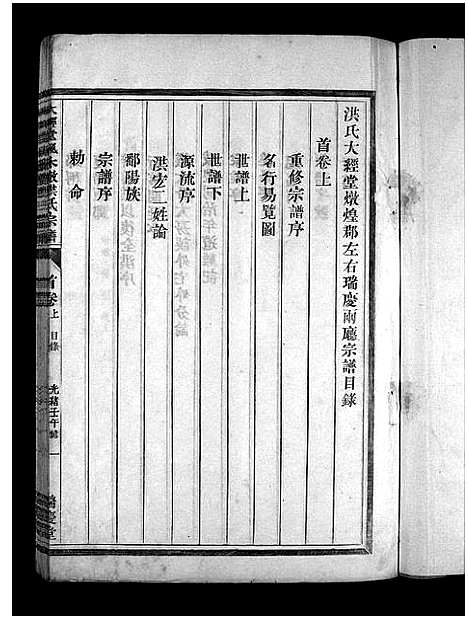 洪氏大經堂燉煌郡左右瑞慶兩廳宗譜目錄
首卷上
重修宗譜序
名行易覽圖
世譜上
世譜下
源流序
洪宏二姓論
鄱陽族
宗譜序
勅命
洪氏宗譜
首卷上
目錄
光緒壬午年
堂